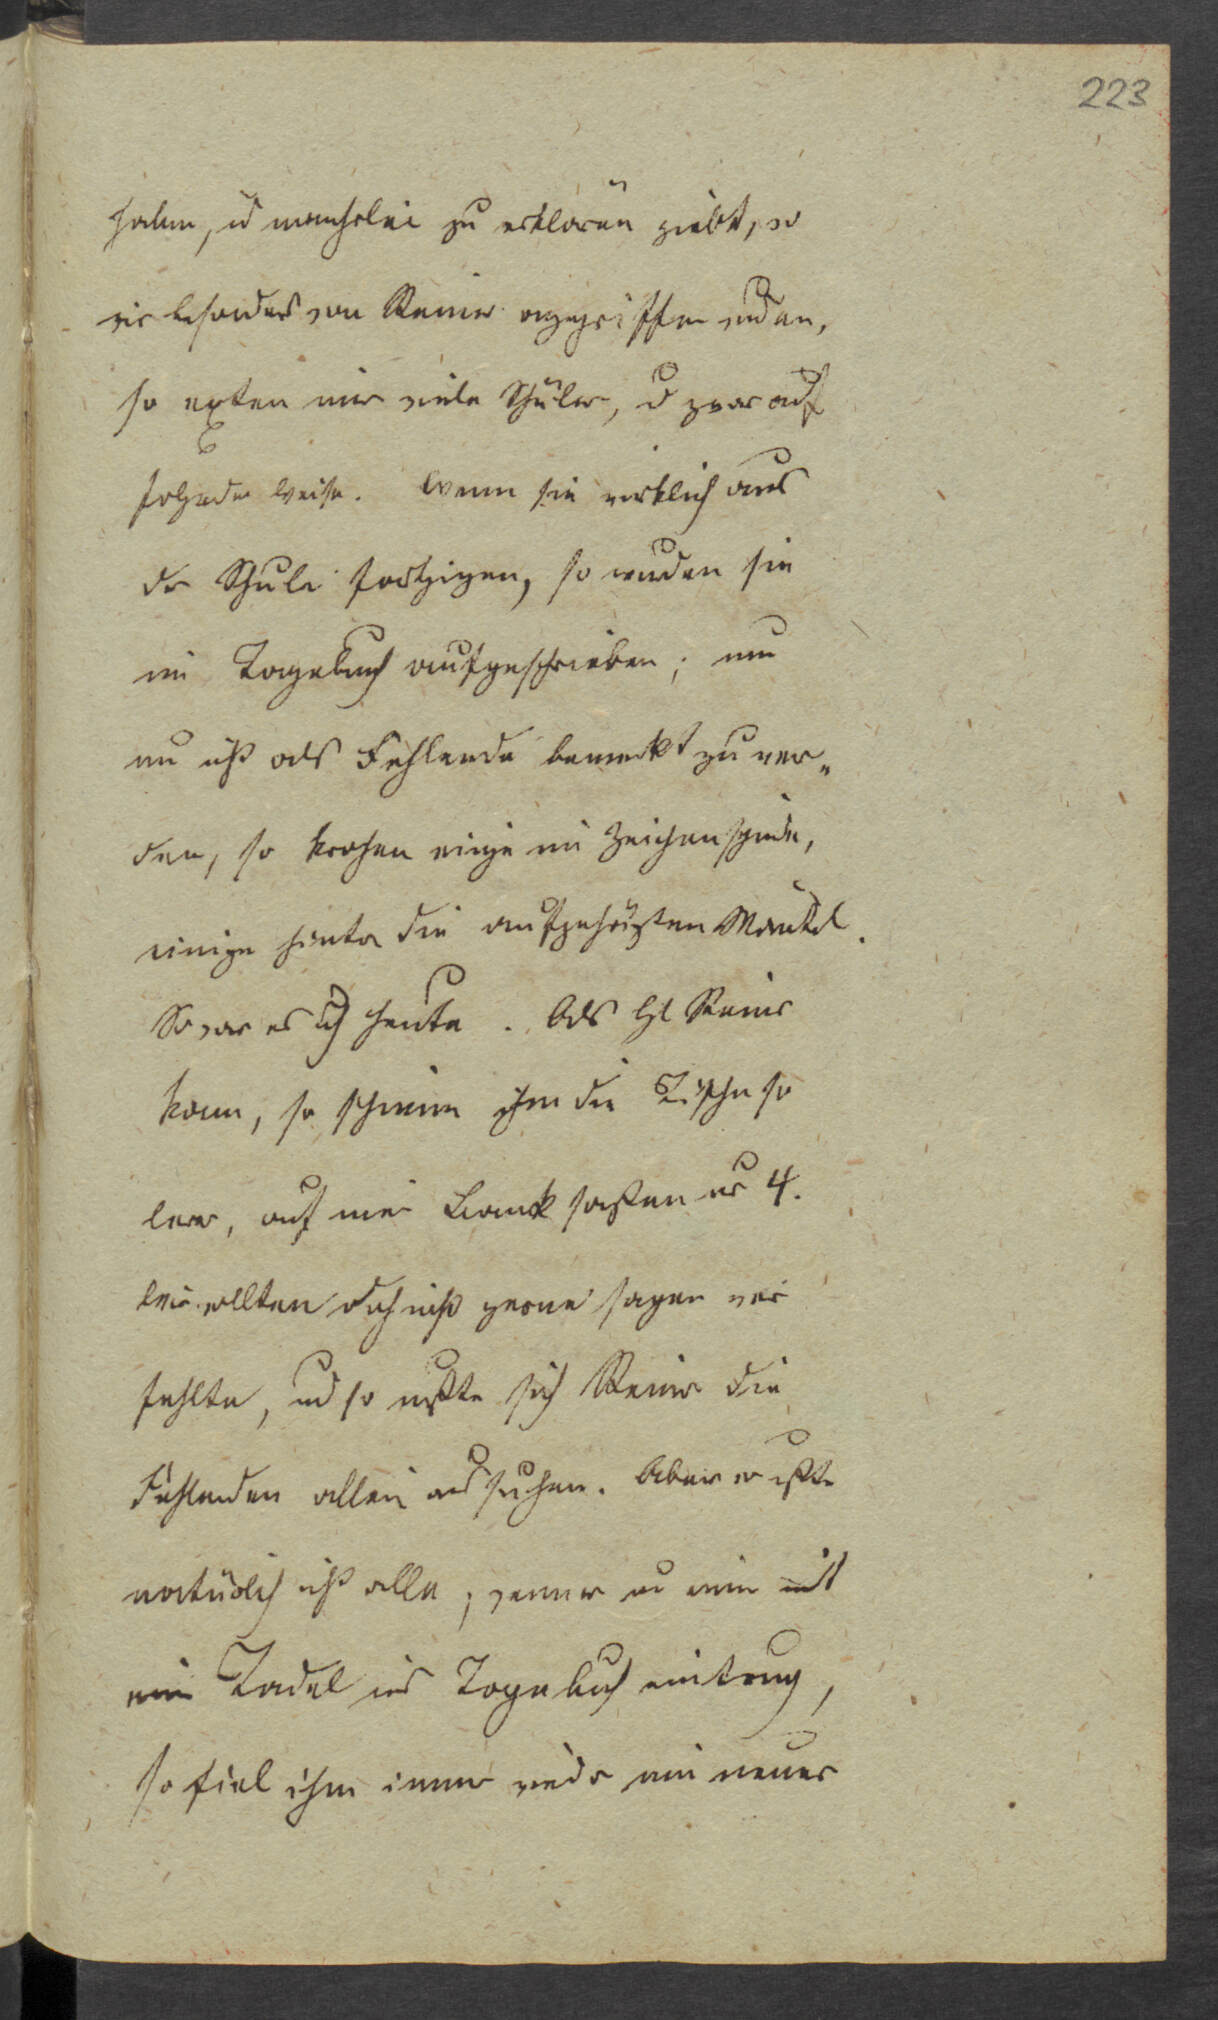 223
haben, u mancherlei zu erklären giebt, wo
wir besonders von Reimer angegriffen werden,
so exten nur viele Schüler, u zwar auf
folgende Weise. Wenn sie wirklich aus
der Schule fortgingen, so wurden sie
im Tagebuch aufgeschrieben; um
nu nicht als Fehlende bemerkt zu wer-
den, so krochen einige in Zeichenspinde,
einige hinter die aufgehängten Mäntel.
So war es auch heute. Als H Reimer
kam, so schienen ihm die Tische so
leer, auf meiner Bank saßen nur 4.
Wir wollten doch nicht gerne sagen wer
fehlte, und so mußte sich Reimer die
Fehlenden allein aussuchen. Aber er wußte
natürlich nicht alle; wenn er nu einen mit
einem Tadel ins Tagebuch eintrug,
so fiel ihm immer wieder ein neuer